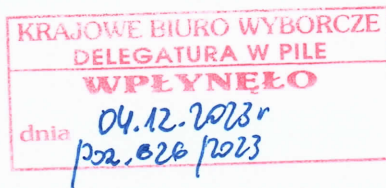 KRAJOWE BIURO WYBORCZE
DELEGATURA W PILE
WPŁYNĘŁO
dnia 04.12.2023r
poz. 626/2023